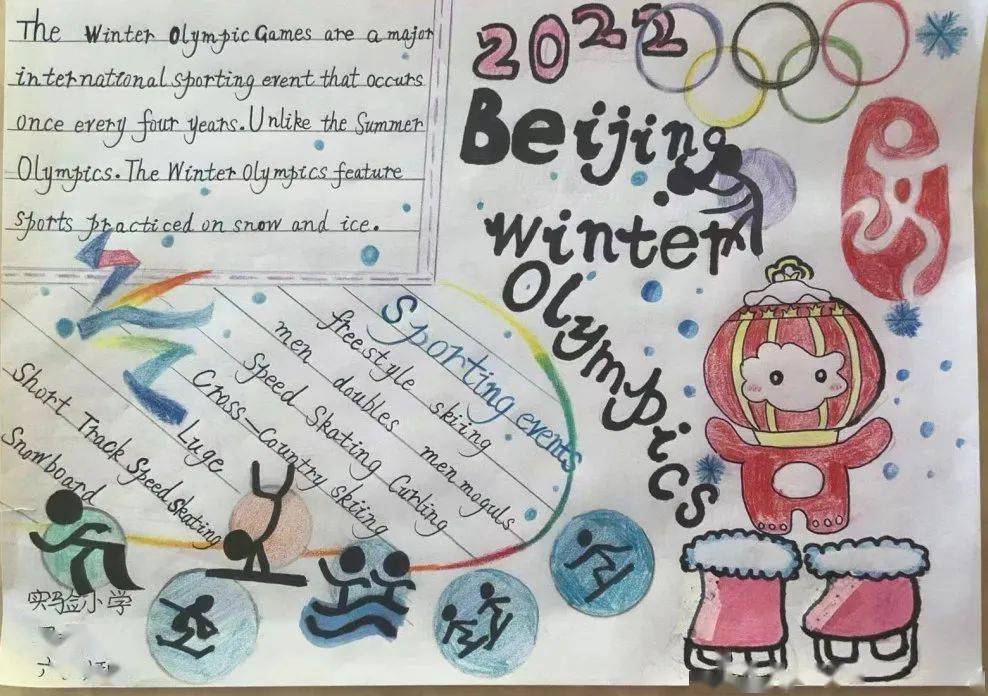 The Winter Olympic Games are a major
international sporting event that occurs
once every four years. Unlike the Summer
Olympics. The Winter Olympics feature
sports practiced on snow and ice.
2022
Beijing
Winter
Olympics
Sporting events
freestyle skiing
men doubles men moguls
Speed Skating Curling
Cross-Country skiing
Luge
Short Track Speed Skating
Snowboard
实验小学